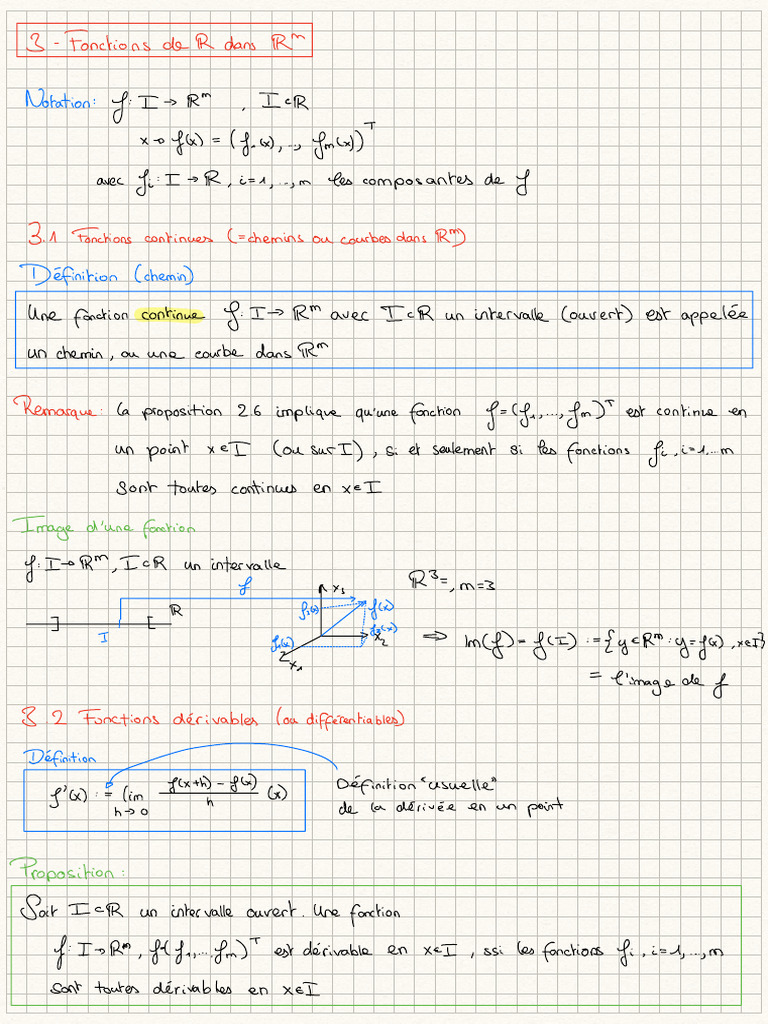 3 - Fonctions de ℝ dans ℝᵐ
Notation: f: I → ℝᵐ , I⊂ℝ
x → f(x) = (f₁(x), .., fₘ(x))ᵀ
avec fᵢ: I → ℝ, i=1, ..., m les composantes de f
3.1 Fonctions continues (=chemins ou courbes dans ℝᵐ)
Définition (chemin)
Une fonction continue f: I → ℝᵐ avec I⊂ℝ un intervalle (ouvert) est appelée
un chemin, ou une courbe dans ℝᵐ
Remarque: la proposition 2.6 implique qu'une fonction f=(f₁, ..., fₘ)ᵀ est continue en
un point x∈I (ou sur I), si et seulement si les fonctions fᵢ, i=1,...m
sont toutes continues en x∈I
Image d'une fonction
f: I→ℝᵐ, I⊂ℝ un intervalle
ℝ³=, m=3
f
x₃
f₃(x)
f(x)
ℝ
] [
I
f₁(x)
f₂(x)
x₂
x₁
⇒ Im(f) = f(I) := {y∈ℝᵐ: y=f(x), x∈I}
= l'image de f
3.2 Fonctions dérivables (ou différentiables)
Définition
f'(x) := lim h→0 (f(x+h) - f(x))/h (x)
Définition "usuelle"
de la dérivée en un point
Proposition:
Soit I⊂ℝ un intervalle ouvert. Une fonction
f: I→ℝᵐ, f=(f₁,...fₘ)ᵀ est dérivable en x∈I, ssi les fonctions fᵢ, i=1,...,m
sont toutes dérivables en x∈I